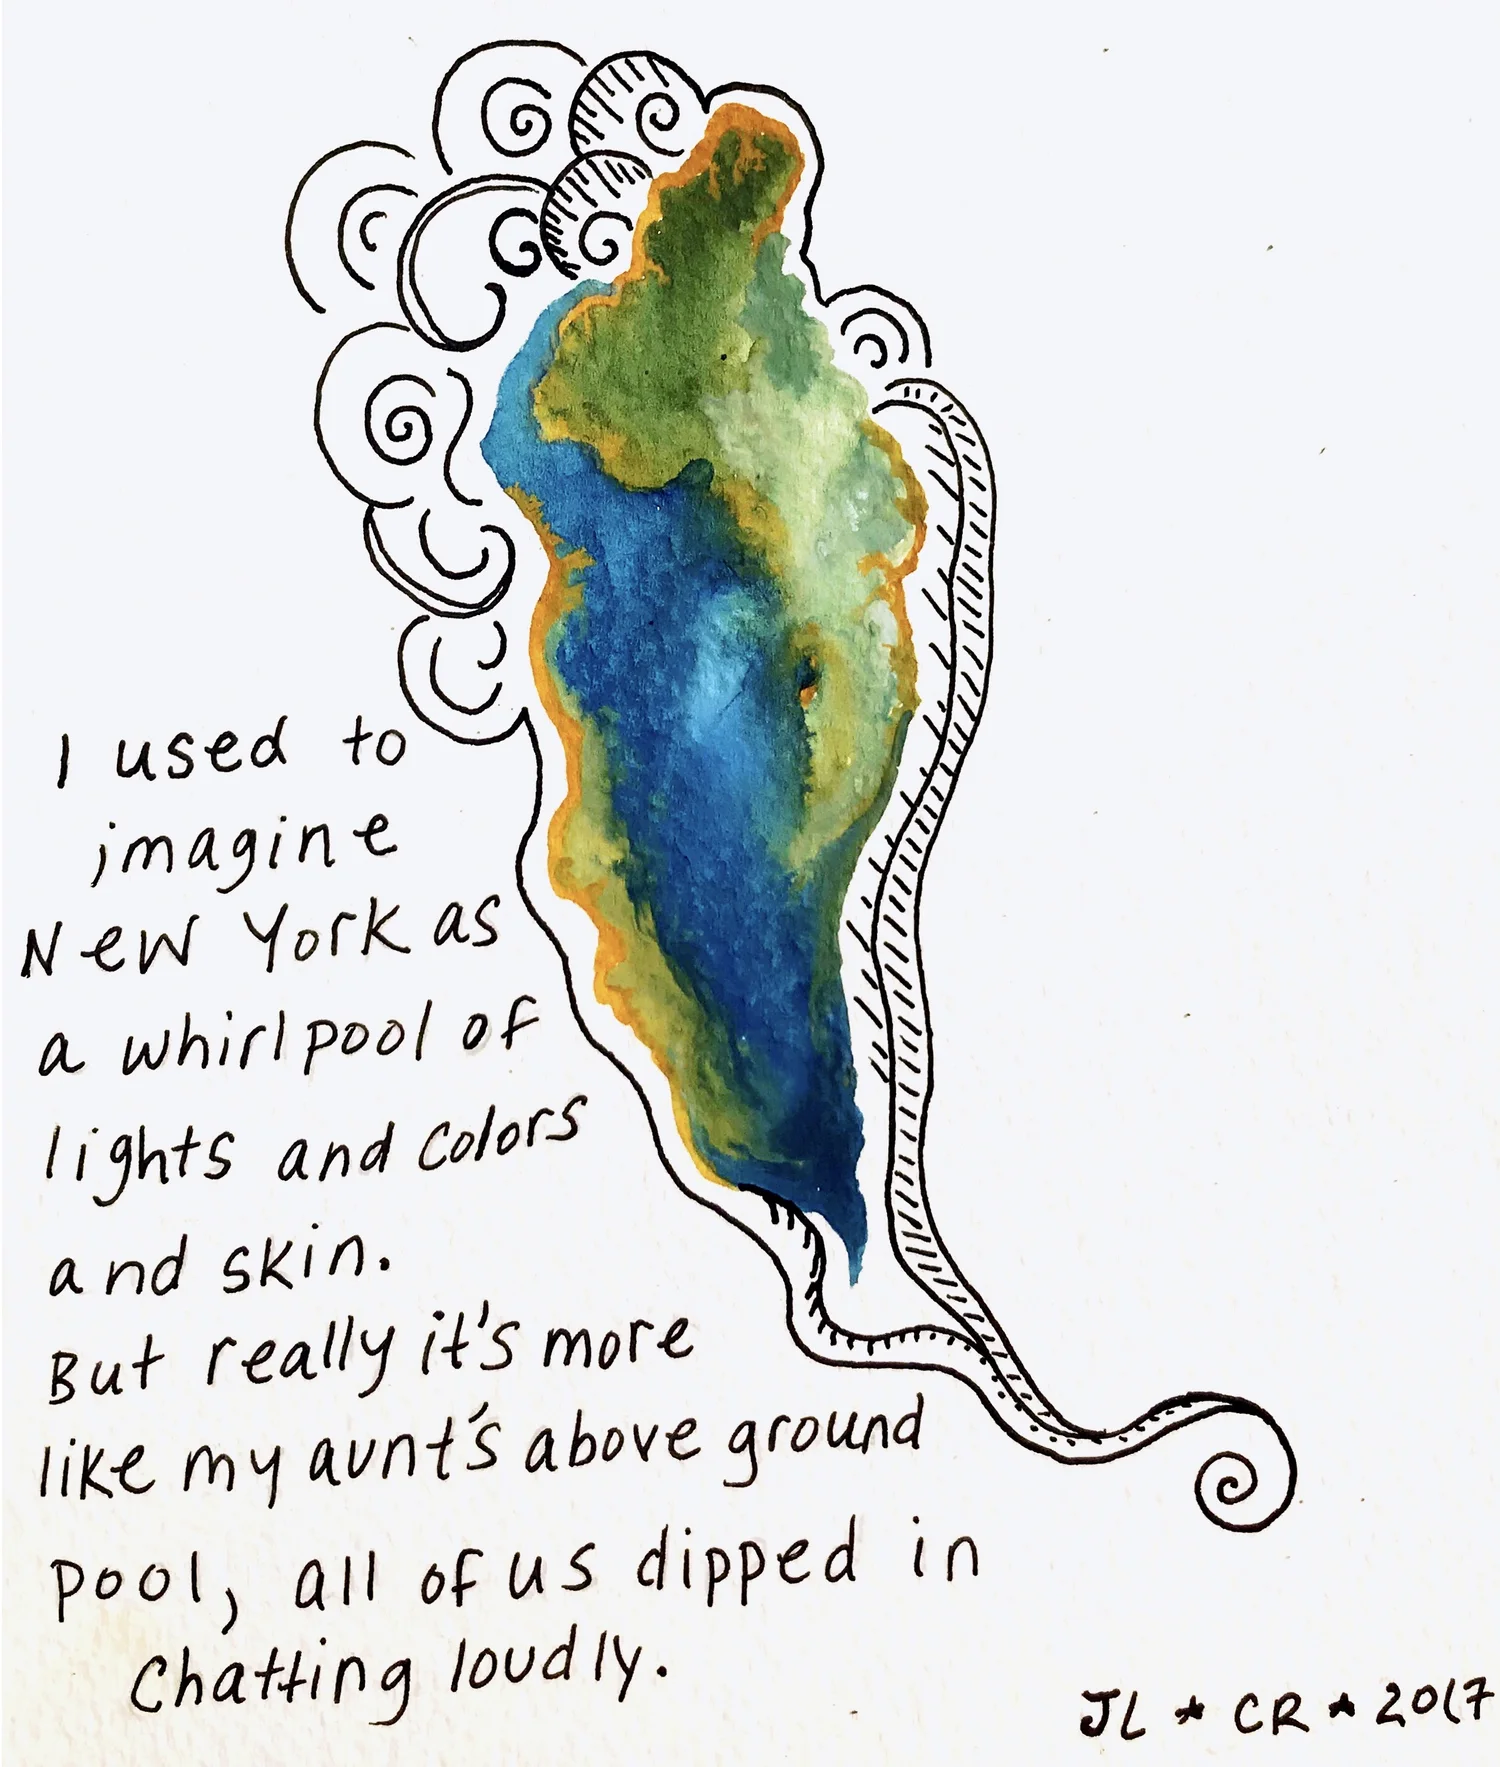 I used to
imagine
New York as
a whirlpool of
lights and colors
and skin.
But really it's more
like my aunt's above ground
pool, all of us dipped in
chatting loudly.
JL ★ CR ★ 2017